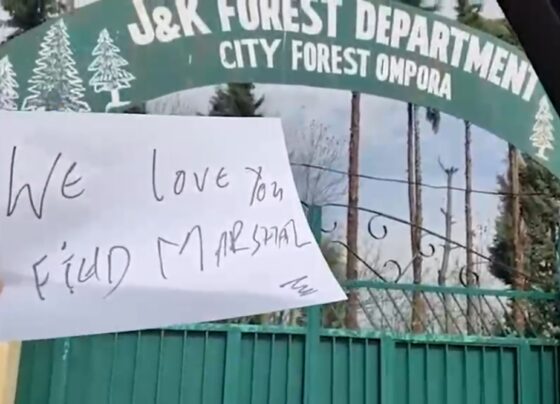 J&K FOREST DEPARTMENT
CITY FOREST OMPORA
WE love You
FiElD MARSHAL